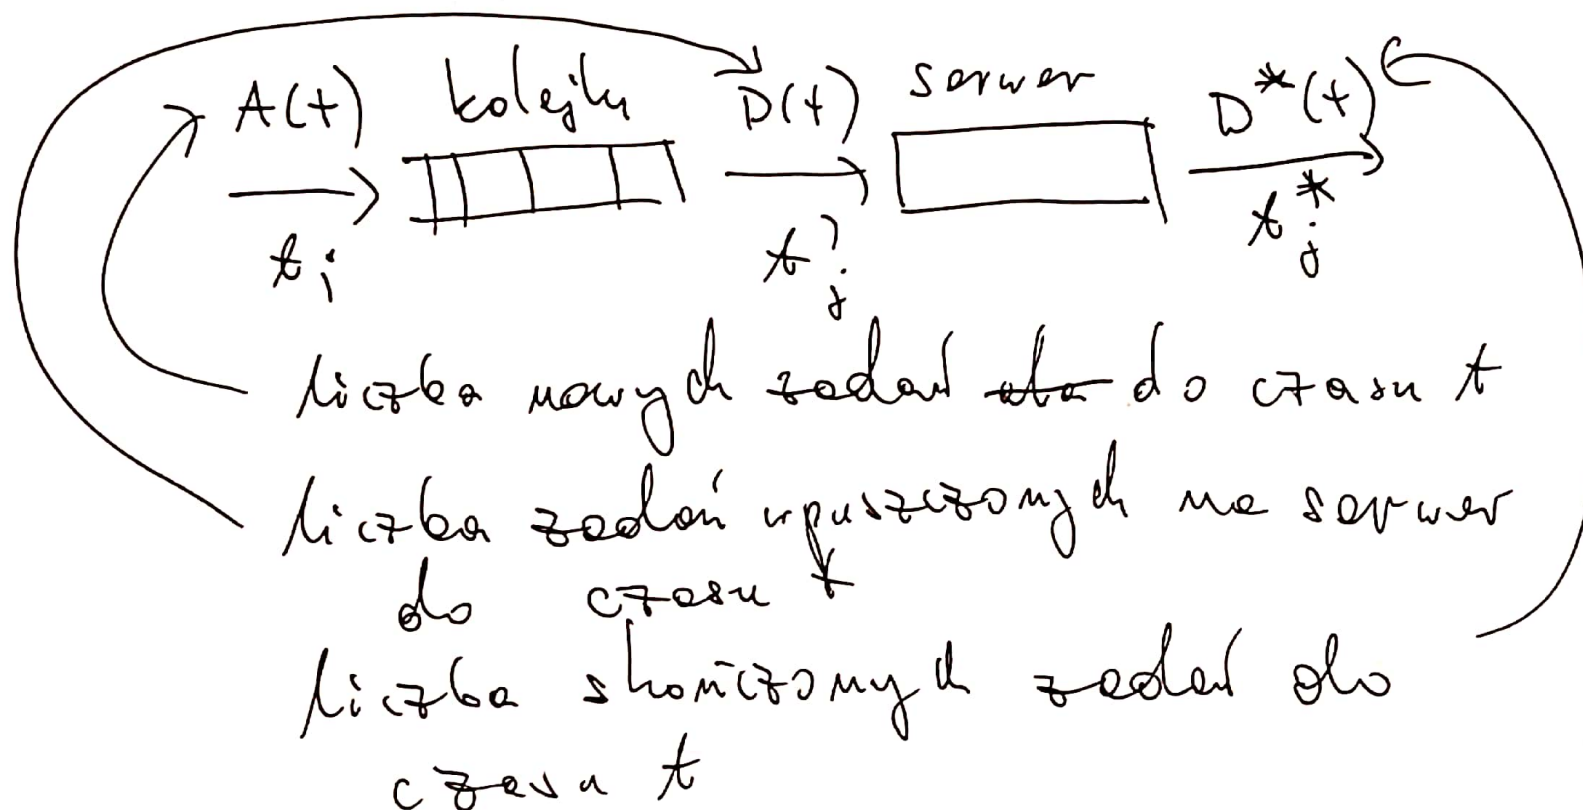 A(t) kolejka D(t) serwer D*(t)
t_j t'_j t*_j
liczba nowych zadań do czasu t
liczba zadań wpuszczonych na serwer
do czasu t
liczba skończonych zadań do
czasu t